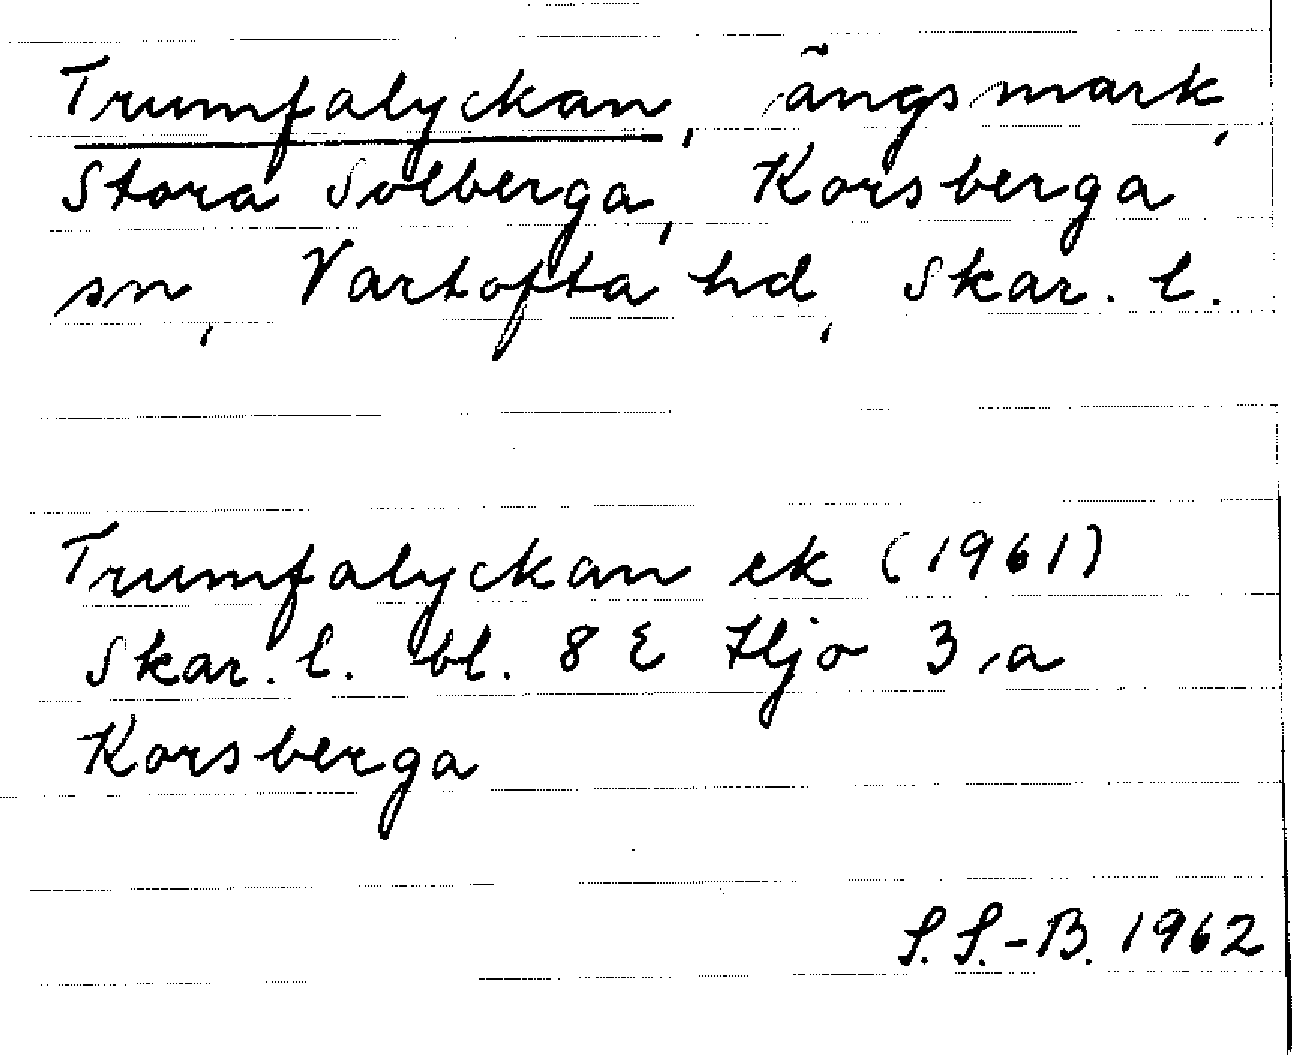 Trumfalyckan, ängsmark,
Stora Solberga, Korsberga
sn, Vartofta hd, Skar. l.
Trumfalyckan ek (1961)
Skar. l. bl. 8 E Hjo 3, a
Korsberga
S. S.-B. 1962